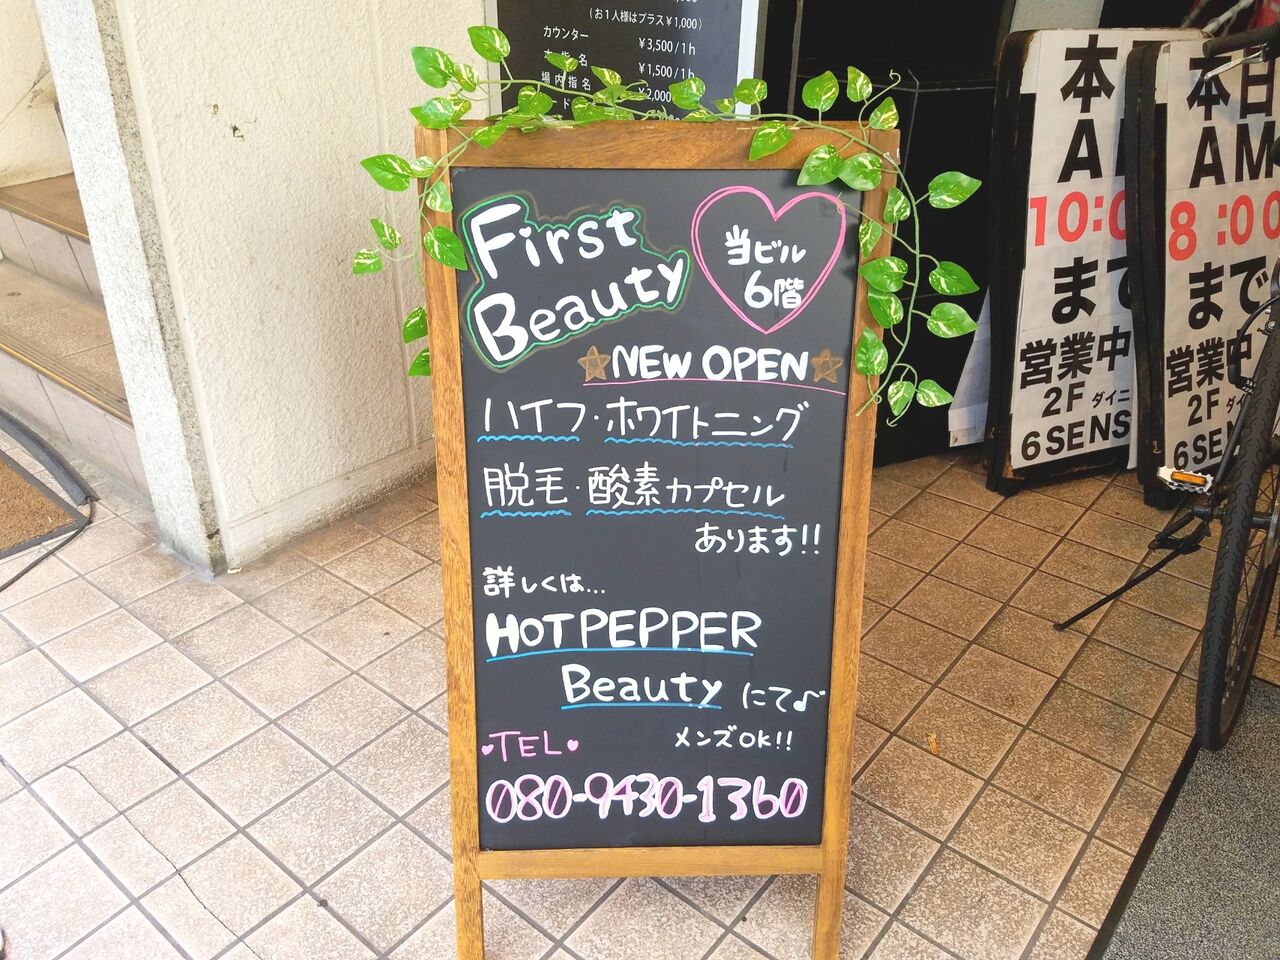 (お1人様はプラス¥1,000)
カウンター ¥3,500/1h
本指名 ¥1,500/1h
場内指名 ¥2,000
First
Beauty
当ビル
6階
NEW OPEN
ハイフ・ホワイトニング
脱毛・酸素カプセル
あります!!
詳しくは...
HOT PEPPER
Beauty にて♪
メンズOK!!
TEL
080-9430-1360
本
A
10:0
まで
営業中
2F ダイニ
6SENS
本日
AM
8:00
まで
営業中
2F
6SENS